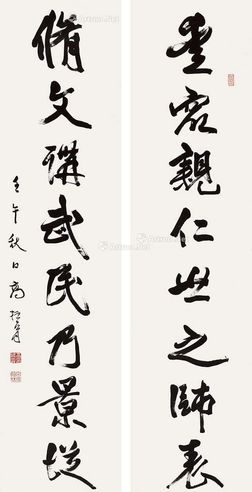 愛眾親仁世之師表
脩文講武民乃景從
壬午秋日高